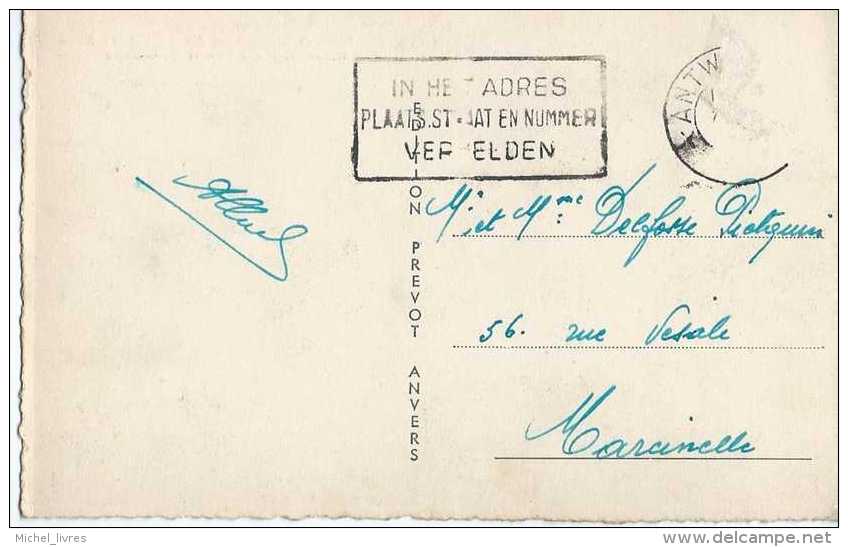 IN HET ADRES
PLAATS.STRAAT EN NUMMER
VERMELDEN
ANTW
EDITION PREVOT ANVERS
Mr et Mme Delfosse
56. rue Vesale
Marcinelle
Michel_livres
www.delcampe.net